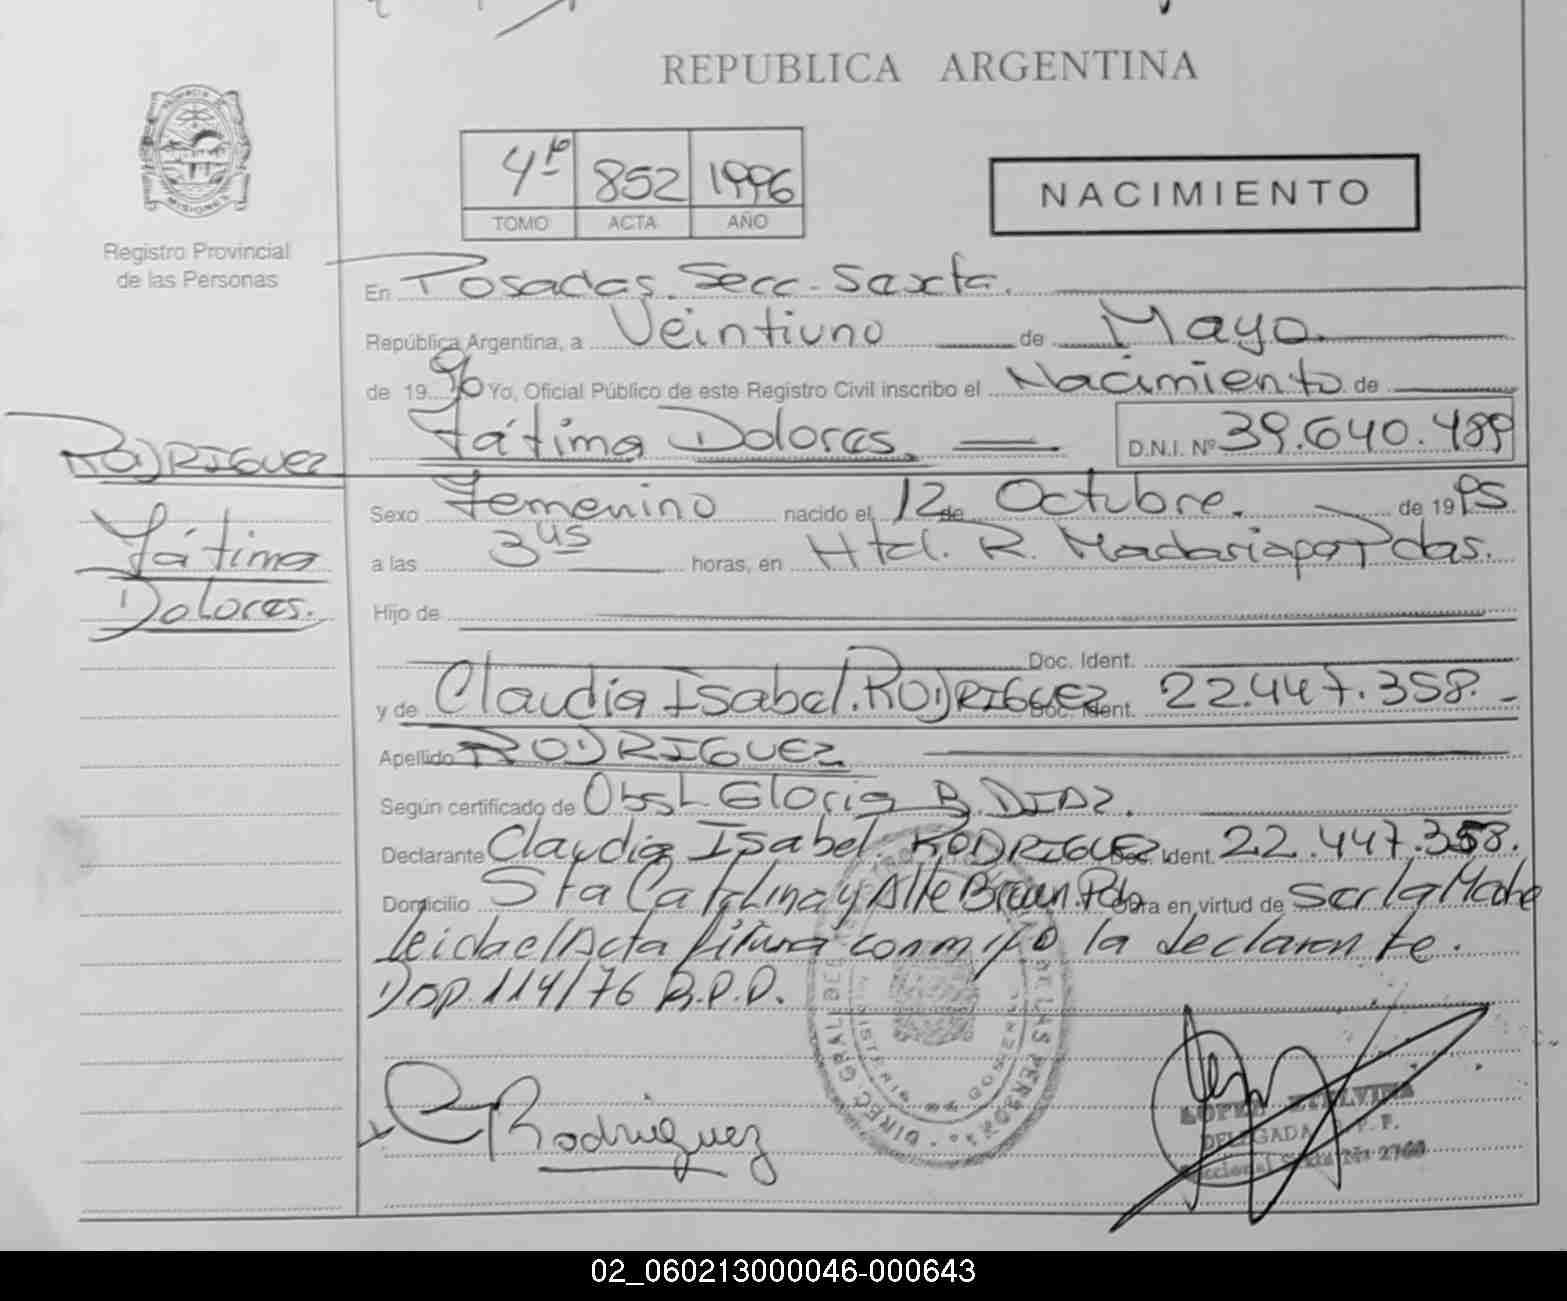 REPUBLICA ARGENTINA
PROVINCIA DE
MISIONES
Registro Provincial
de las Personas
4to 852 1996
TOMO ACTA AÑO
NACIMIENTO
En Posadas. Secc. Sexta.
República Argentina, a Veintiuno de Mayo
de 1996 Yo, Oficial Público de este Registro Civil inscribo el Nacimiento de
RODRIGUEZ
Fátima Dolores. D.N.I. Nº 39.640.489
Fátima
Dolores.
Sexo Femenino nacido el 12 de Octubre. de 1995
a las 3 hs horas, en Htal. R. Madariaga Pdas.
Hijo de
Doc. Ident.
y de Claudia Isabel. RODRIGUEZ Doc. Ident. 22.447.358.-
Apellido RODRIGUEZ
Según certificado de Obst Gloria B. DIAZ.
Declarante Claudia Isabel. RODRIGUEZ Doc. Ident. 22.447.358.
Domicilio Sta Catalina y Alte Brown. Obra en virtud de ser la Madre
leida el Acta firma conmigo la declarante.
Disp. 114/76
DIREC. GRAL. DE LAS PERSONAS
MINISTERIO DE GOBIERNO
C Rodriguez
LOPEZ ETELVINA
DELEGADA
Seccional Sexta Nº 2760
02_060213000046-000643